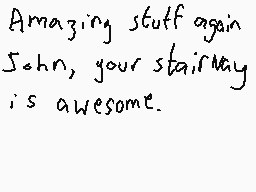 Amazing stuff again
John, your stairway
is awesome.